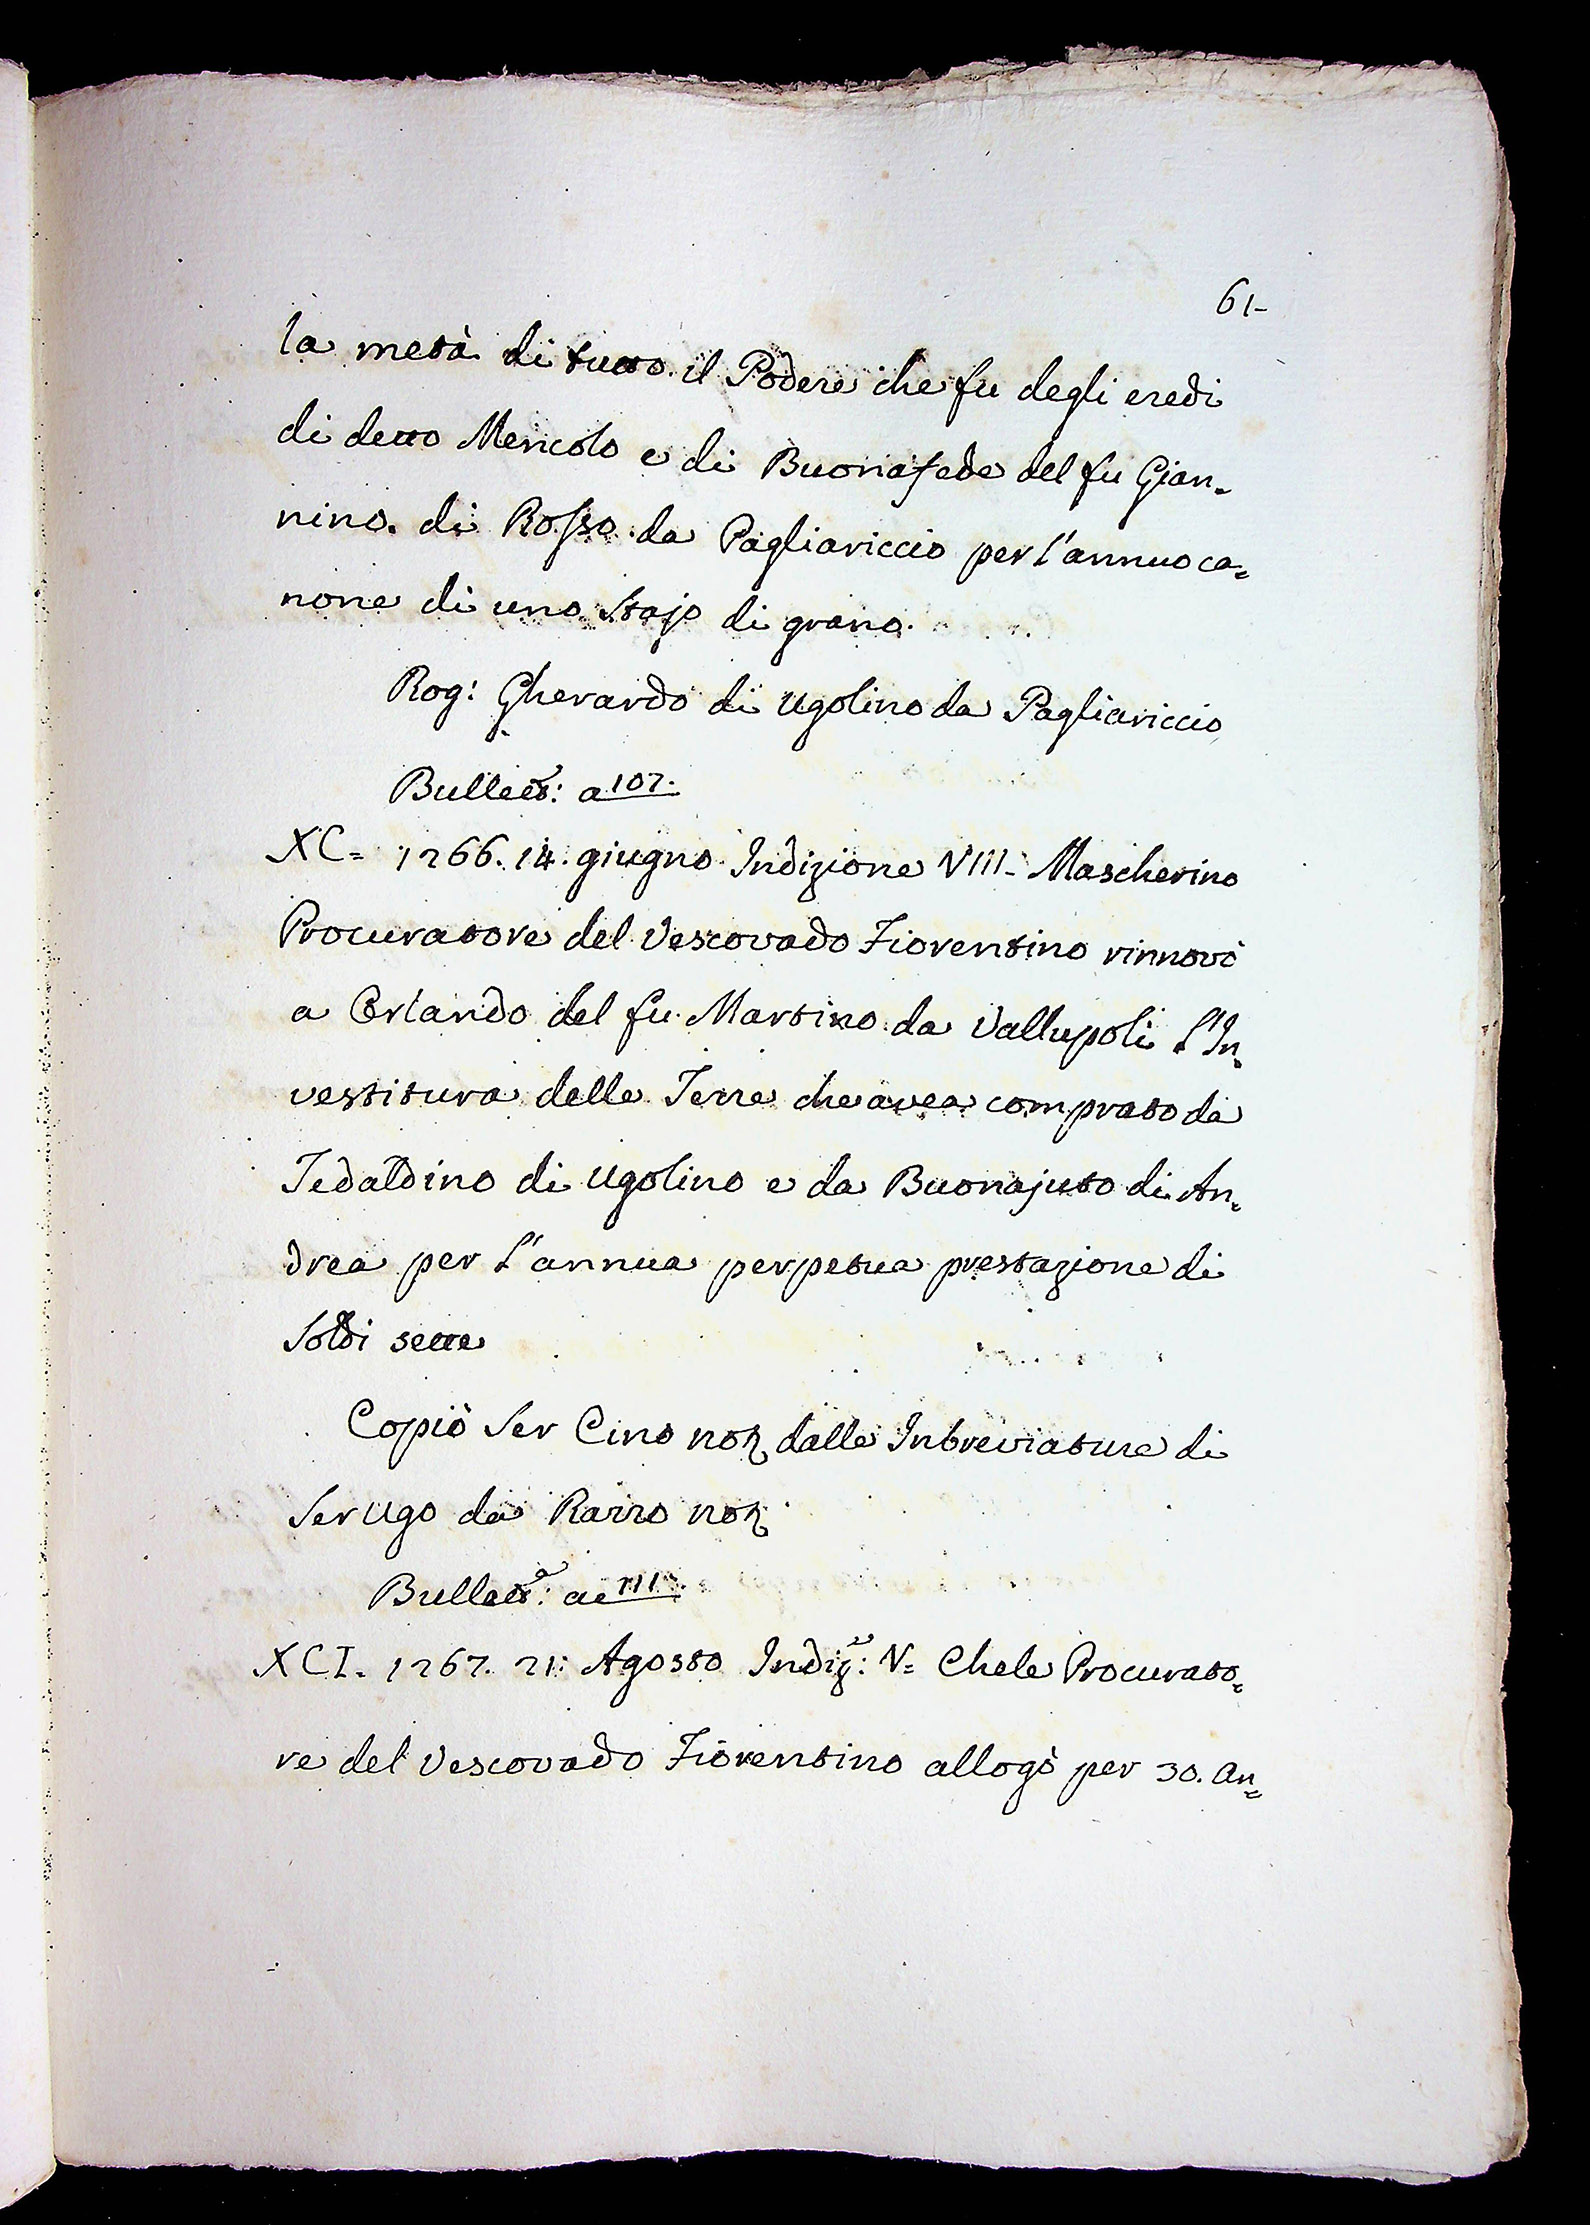 61-
la metà di tutto il Podere che fu degli eredi
di detto Mericolo e di Buonafede del fu Gian=
nino di Rosso da Pagliariccio per l'annuo ca=
none di uno Stajo di grano.
Rog: Gherardo di Ugolino da Pagliariccio
Bullett: a 107.
XC= 1266. 14. giugno Indizione VIII- Mascherino
Procuratore del Vescovado Fiorentino rinnovò
a Orlando del fu Martino da Vallupoli l'In=
vestitura delle Terre che avea comprato da
Tedaldino di Ugolino e da Buonajuto di An=
drea per l'annua perpetua prestazione di
Soldi sette
Copiò Ser Cino not dalle Inbreviature di
Ser Ugo da Rarro not
Bullett: a 111.
XCI. 1267. 21: Agosto Indiz: V= Chele Procurato=
re del Vescovado Fiorentino allogò per 30. an=